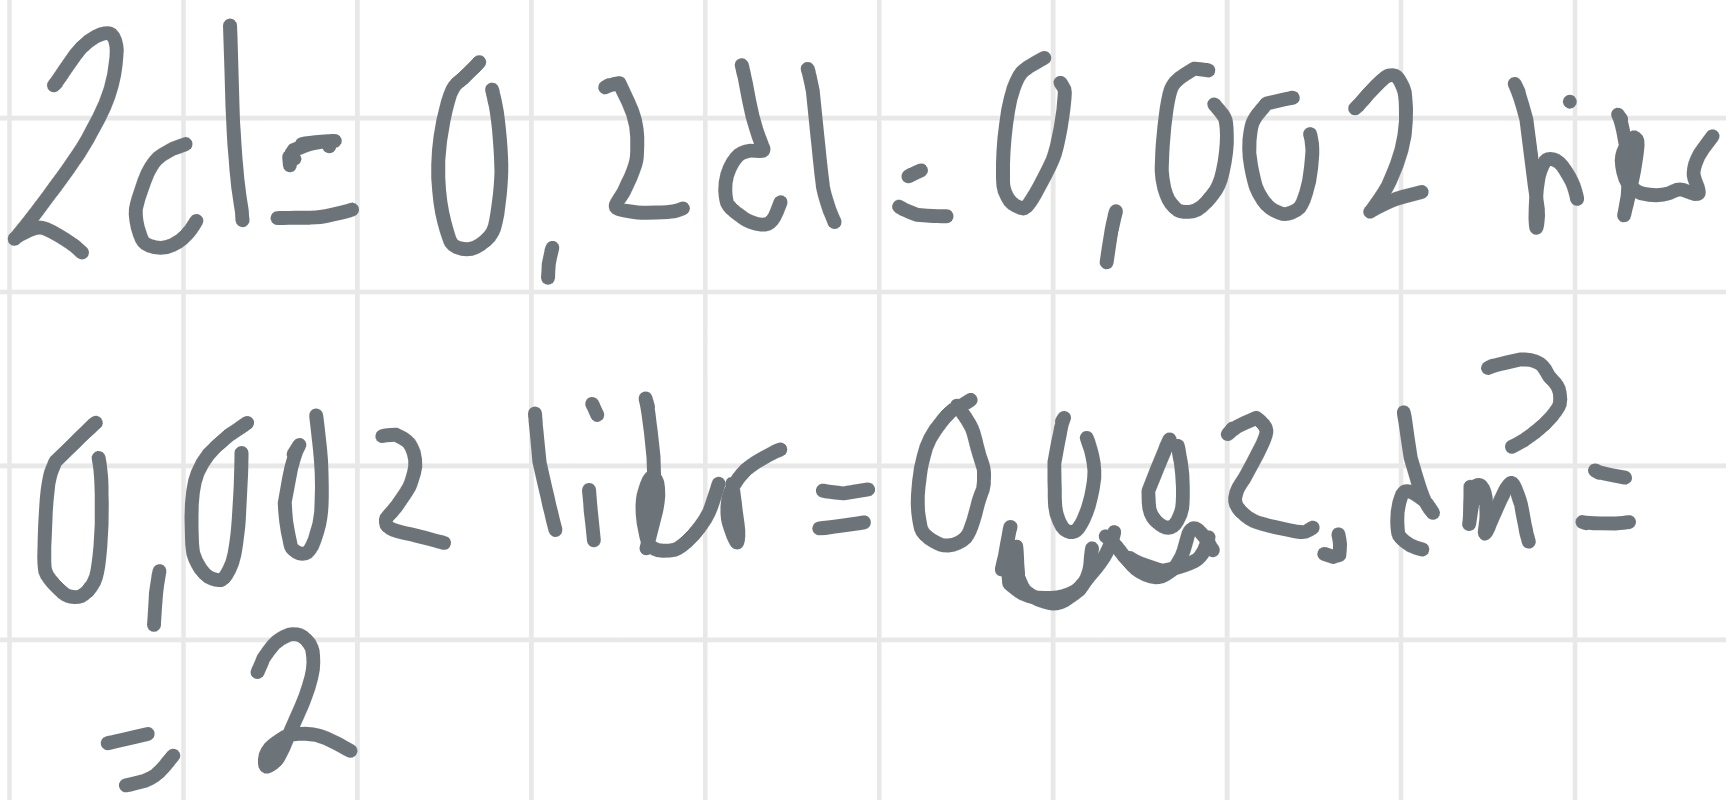 2cl = 0,2dl = 0,002 liter
0,002 liter = 0,002, dm³ =
= 2